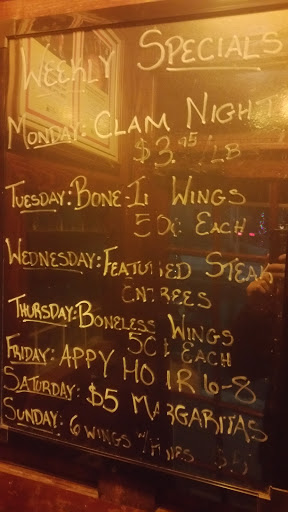 Weekly Specials
Monday: Clam Night
$3.95/LB
Tuesday: Bone-In Wings
50¢ Each
Wednesday: Featured Steak
Entrees
Thursday: Boneless Wings
50¢ Each
Friday: Appy Hour 6-8
Saturday: $5 Margaritas
Sunday: 6 Wings